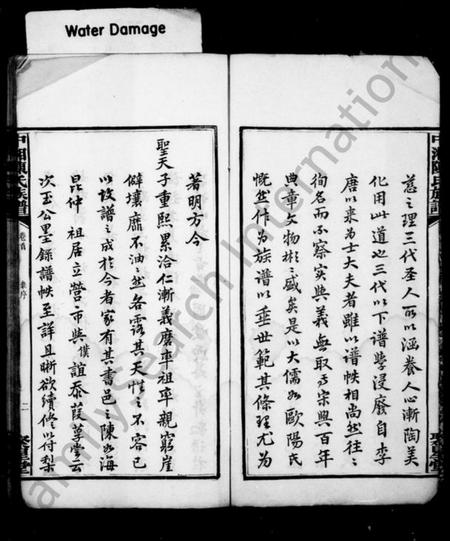 Water Damage
中湘陳氏族譜
慈之理三代至人所以涵養人心漸陶美
化用此道也三代以下譜學浸廢自李
唐以來為士大夫者雖以譜帙相尚然往々
徇名而不察實與義無取乃宋興百年
典章文物彬々盛矣是以大儒如歐陽氏
慨然作為族譜以垂世範其條理尤為
著明方今
聖天子重熙累洽仁漸義磨率祖率親窮崖
僻壤靡不油々然各露其天性之不容已
以故譜之成於今者家有其書邑之陳如海
昆仲祖居立營市與僕誼泰葭莩堂云
次玉公墨錄譜帙至詳且晰欲續修以付梨
中湘陳氏族譜
卷首
二
聚星堂
FamilySearch International